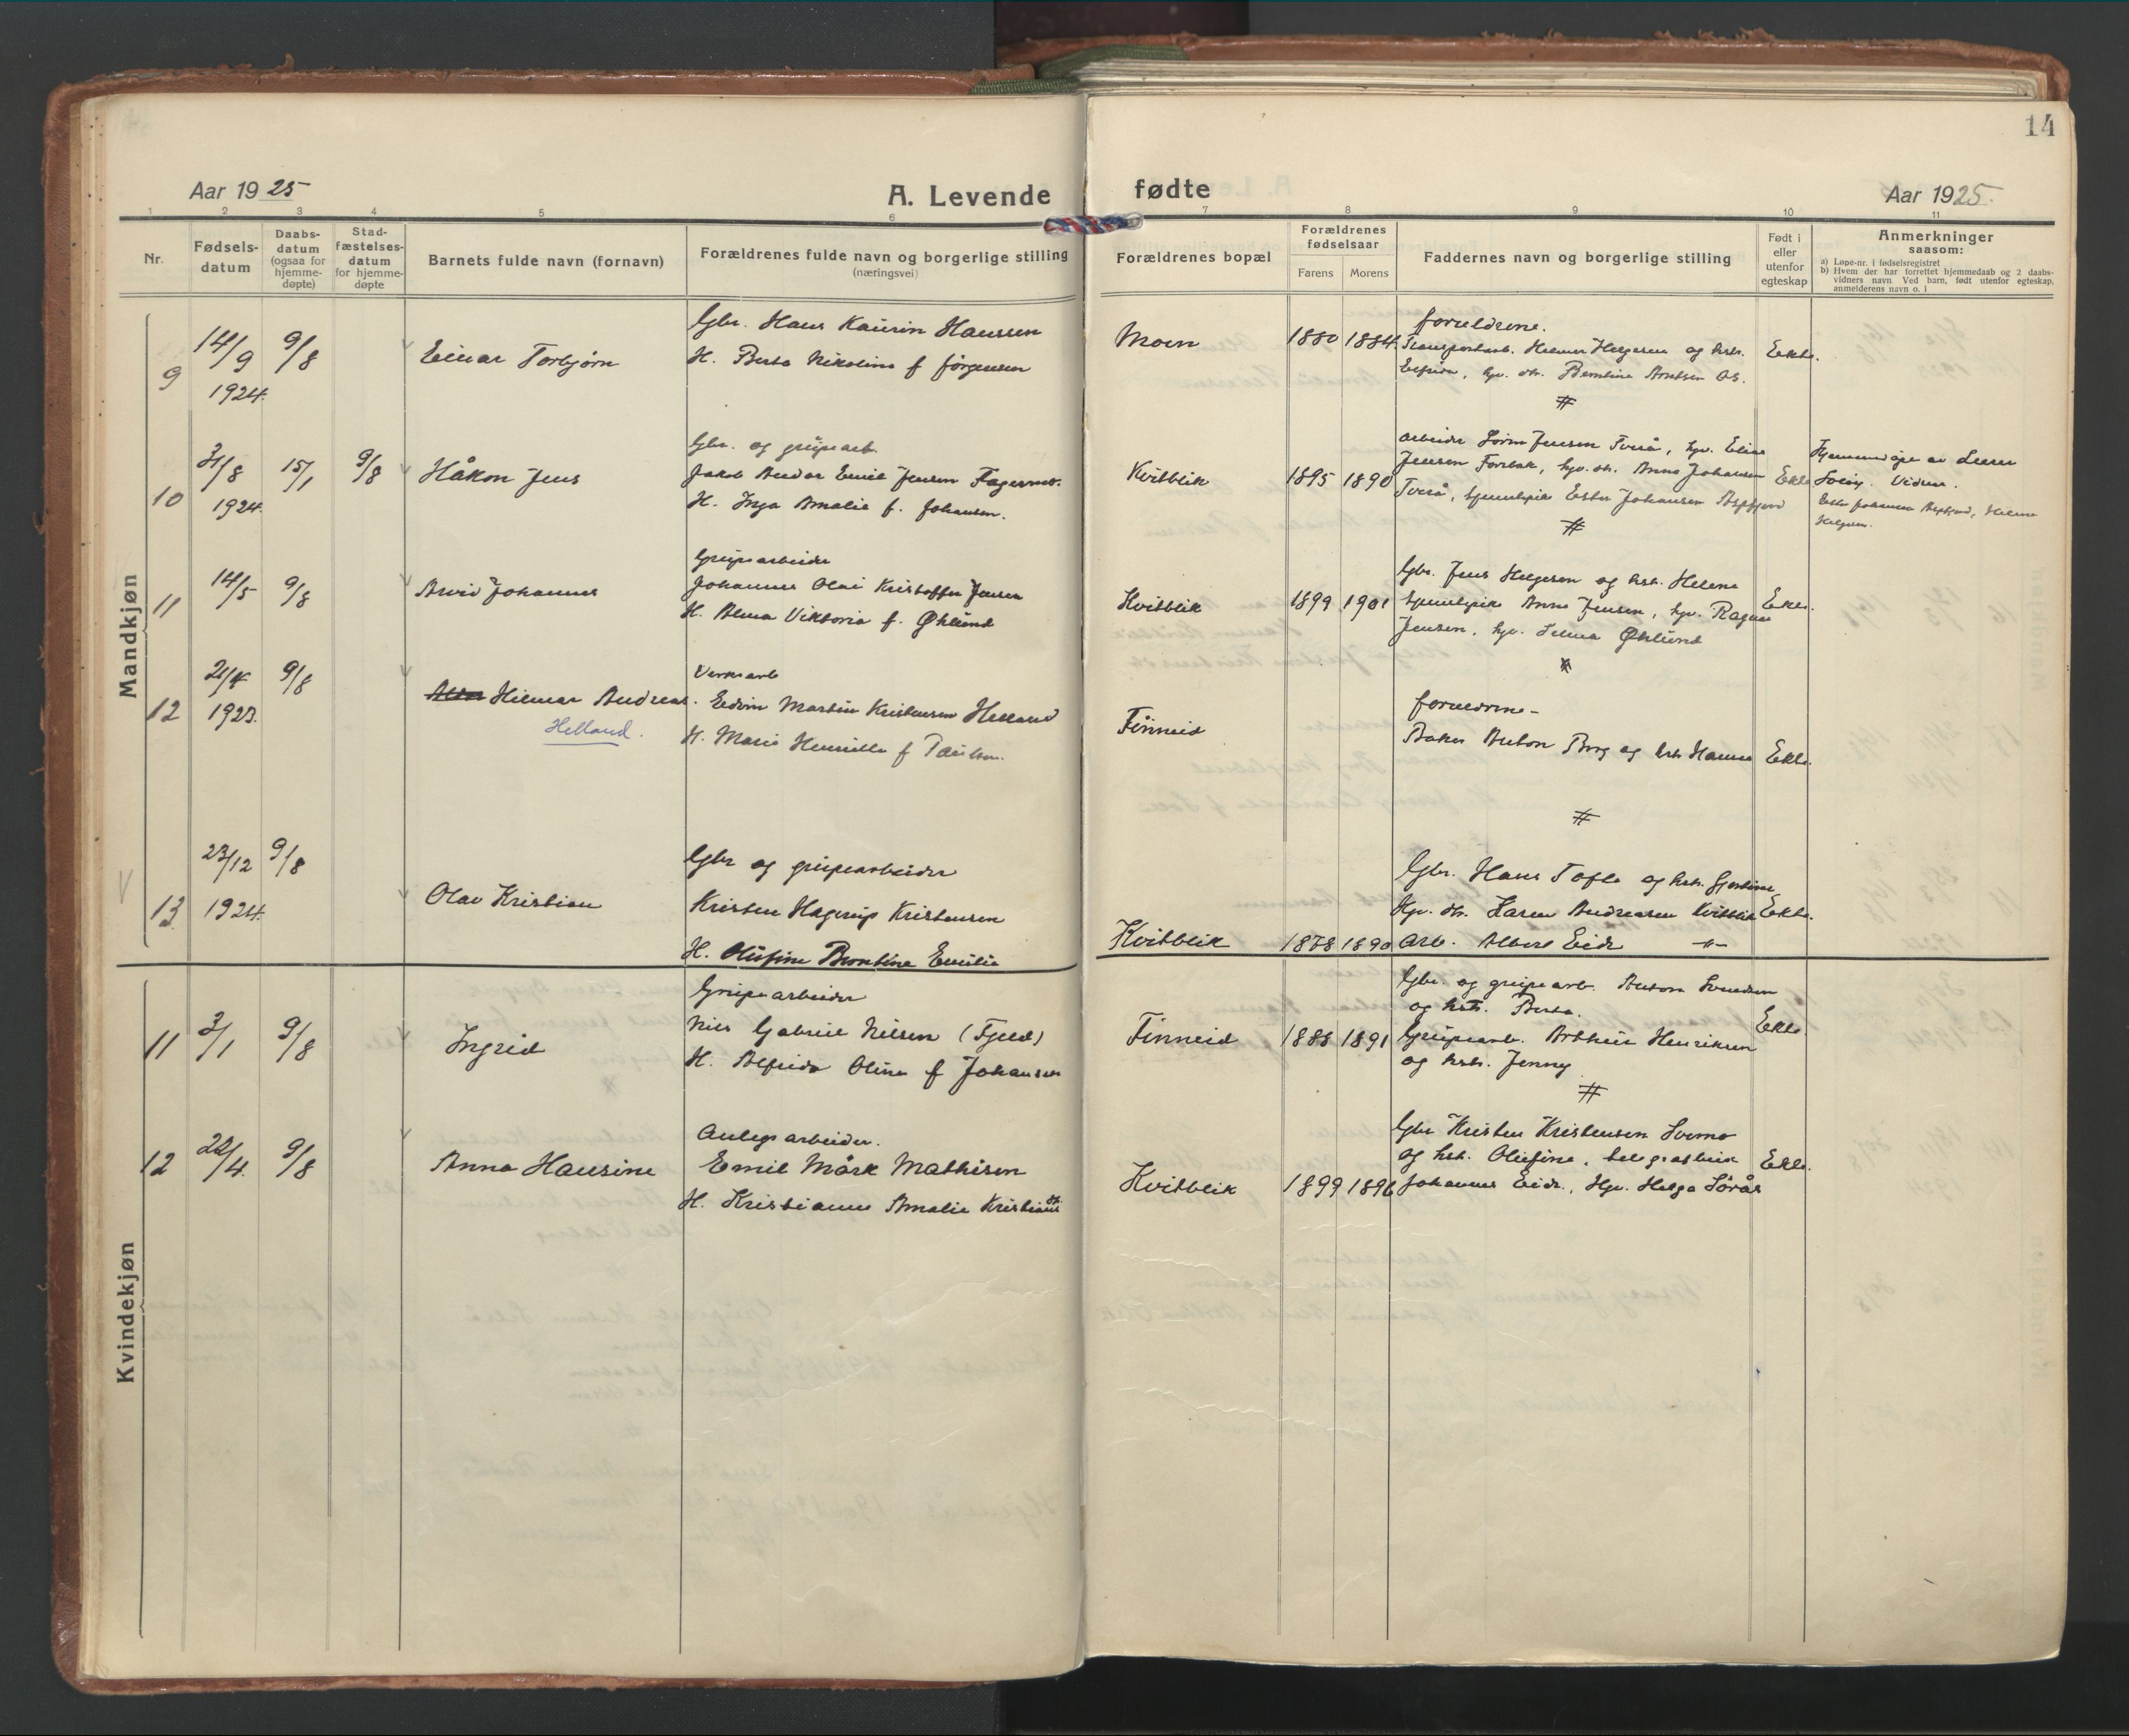 14
Aar 1925
A. Levende
fødte
Aar 1925.
1 2 3 4 5 6 7 8 9 10 11
Nr.
Fødsels-
datum
Daabs-
datum
(ogsaa for
hjemme-
døpte)
Stad-
fæstelses-
datum
for hjemme-
døpte
Barnets fulde navn (fornavn)
Forældrenes fulde navn og borgerlige stilling
(næringsvei)
Forældrenes bopæl
Forældrenes
fødselsaar
Farens Morens
Faddernes navn og borgerlige stilling
Født i
eller
utenfor
egteskap
Anmerkninger
saasom:
a) Løpe-nr. i fødselsregistret
b) Hvem der har forrettet hjemmedaab og 2 daabs-
vidners navn Ved barn, født utenfor egteskap,
anmelderens navn o. l
Mandkjøn
9
14/9
1924.
9/8
Einar Torbjørn
Gbr. Hans Kaurin Hanssen
H. Berta Nikoline f Jørgensen
Moen
1880 1884.
foreldrene.
Transportarb. Helmer Helgesen og hstr.
Elfrida, hpv. dtr. Berntine Arntsen Os.
Ekte.
10
31/8
1924.
15/1
9/8
Håkon Jens
Gbr. og grupearb.
Jakob Emil Jensen Fagermo.
H. Inga Amalie f. Johansen.
Kvitblik
1895 1890
arbeider Sørin Jensen Tverå, hpv. Elise
Jensen Forsbak, hpv. dtr. Anna Johansen
Tverå, tjenestpike Ester Johansen Aspfjord
Ekte
Hjemmedøpt av Lærer
Vidner.
Ester Johansen Aspfjord, Helene
Helgesen.
11
14/5
9/8
Arvid Johannes
Grupearbeider
Johannes Olai Kristoffer Jensen
H. Alma Viktoria f. Øhlund
Kvitblik
1899 1901
Gbr. Jens Helgesen og hstr. Helene
tjenestpike Anna Jensen, hpv. Ragna
Jensen, hpv. Selma Øhlund
Ekte.
12
21/4
1923.
9/8
Hilmar Andreas.
Helland.
Verksarb
Edvin Martin Kristensen Helland
H. Marie Henriette f Paulsen.
Finneid
foreldrene -
Baker Anton Borg og hstr Hanna
Ekte.
13
23/12
1924.
9/8
Olav Kristian
Gbr og grupearbeider
Kristen Hagerup Kristensen
H. Olufine Berntine Emilie
Kvitblik
1878 1890
Gbr. Hans Tofte og hstr. Gjertine,
Hpv. dtr. Karen Andreasen Kvitblik
Arb. Albert Eide -"-
Ekte.
Kvindekjøn
11
3/1
9/8
Ingrid
Grupearbeider
Nils Gabriel Nilsen (Fjeld)
H. Alfrida Oline f Johansen
Finneid
1888 1891
Gbr. og grupearb. Anton Svendsen
og hstr. Berta.
Grupearb. Arthur Henriksen
og hstr. Jenny
Ekte
12
22/4.
9/8
Anna Hansine
Anlegsarbeider.
Emil Mårk Mathisen
H. Kristianne Amalie Kristians dtr
Kvitblik
1899 1896
Gbr Kristen Kristensen Svemo
og hstr. Olufine,
Johannes Eide, Hpv. Helga Sørås
Ekte.